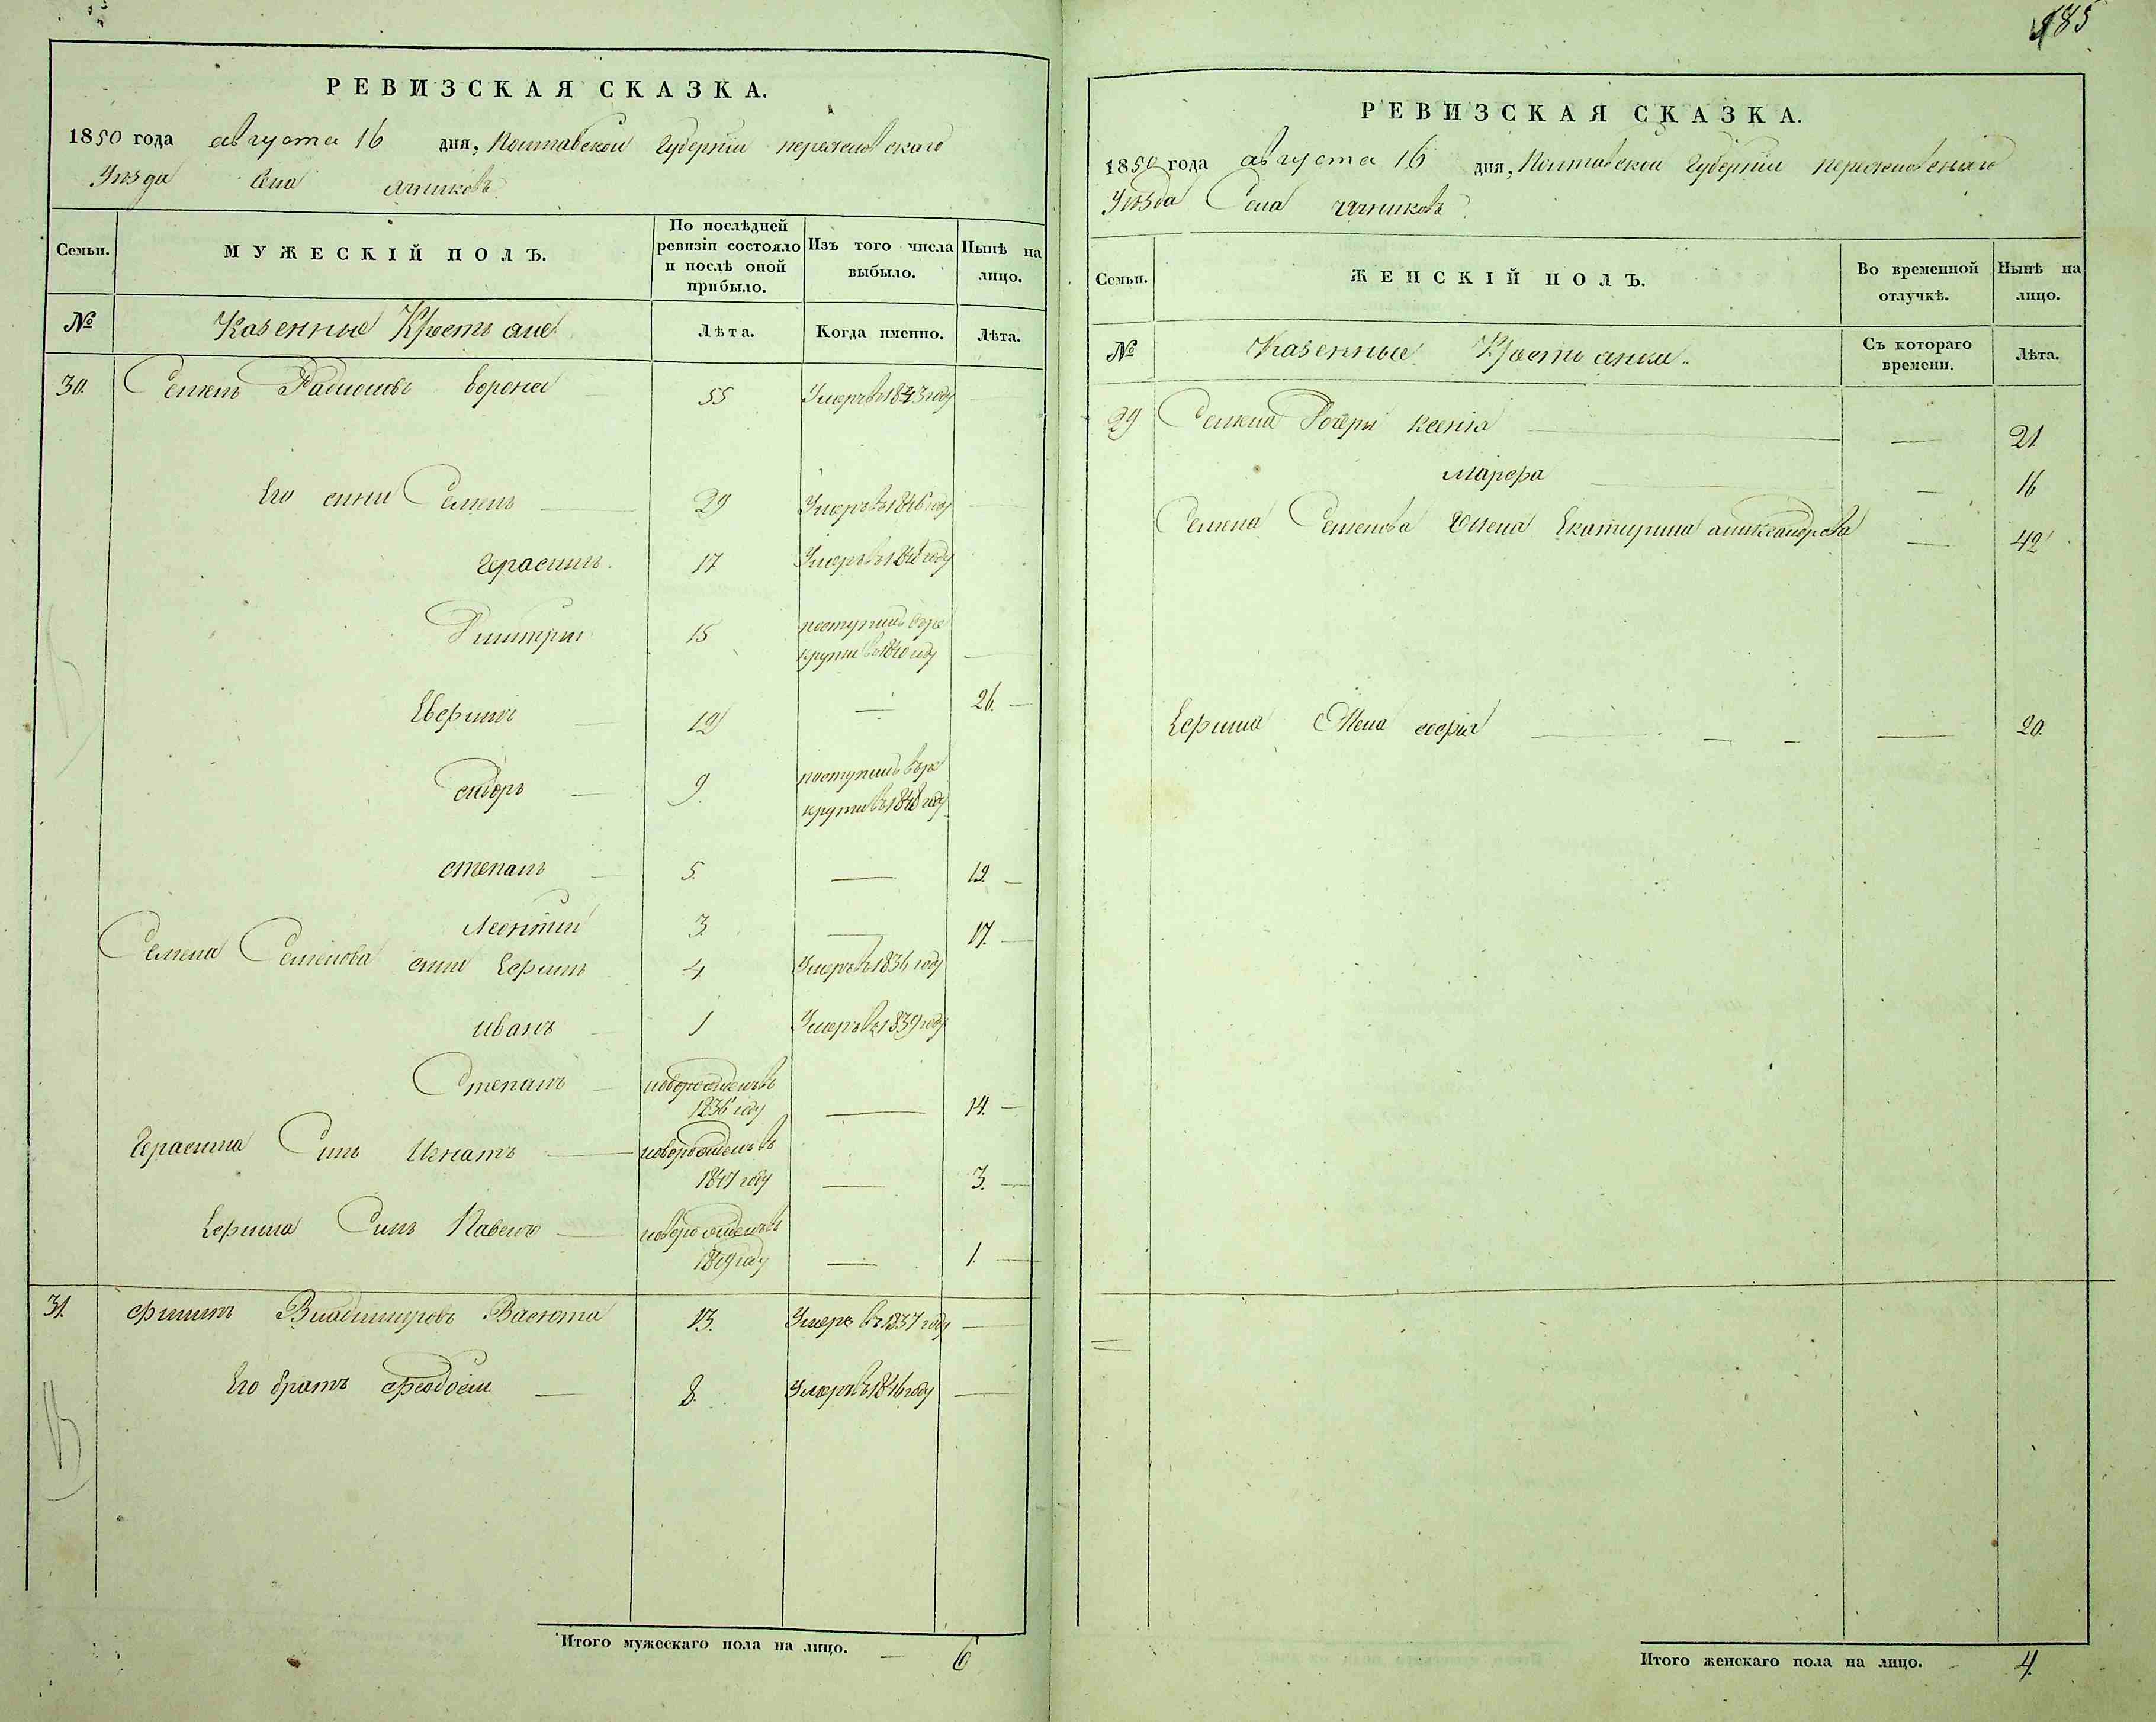 185
РЕВИЗСКАЯ СКАЗКА.
1850 года августа 16 дня, Полтавской Губернiи переяславскаго
Уезда Села
Семьи.
МУЖЕСКІЙ ПОЛЪ.
По послѣдней ревизіи состояло и послѣ оной прибыло.
Изъ того числа выбыло.
Нынѣ на лицо.
№
Казенные Крестьяне
Лѣта.
Когда именно.
Лѣта.
30. Семенъ Радионовъ ворона 55 Умеръ въ 1843 году
Его сини Семенъ 29 Умеръ въ 1846 году
Герасимъ. 17 Умеръ въ 1848 году
Дмитрии 15 поступилъ въ ре
круты въ 1840 году
Евфимъ 12 — 26.
сидоръ 9. поступилъ въ ре
круты въ 1848 году
степанъ 5. — 19.
Леонтии 3. — 17.
Семена Семенова сини Ефимъ 4 Умеръ въ 1836 году
иванъ 1 Умеръ въ 1839 году
Степанъ новорожденъ въ
1836 году — 14.
Герасима Синъ Игнатъ новорожденъ въ
1847 году — 3.
Ефима Синъ Павелъ новорожденъ въ
1849 году — 1.
31. Филипъ Владимировъ Васюта 13. Умеръ въ 1837 году
Его братъ Феодосии 8. Умеръ въ 1846 году
Итого мужескаго пола на лицо. — 6
РЕВИЗСКАЯ СКАЗКА.
1850 года августа 16 дня, Полтавской Губернiи переяславскаго
Уезда Села
Семьи.
ЖЕНСКІЙ ПОЛЪ.
Во временной отлучкѣ.
Нынѣ на лицо.
№
Казенные Крестьянки.
Съ котораго времени.
Лѣта.
29 Семена Дочери ксенiя — 21
Марфа — 16
Семена Семенова Жена Екатирина александрова — 42
Ефима Жена софiя — 20.
Итого женскаго пола на лицо. — 4.